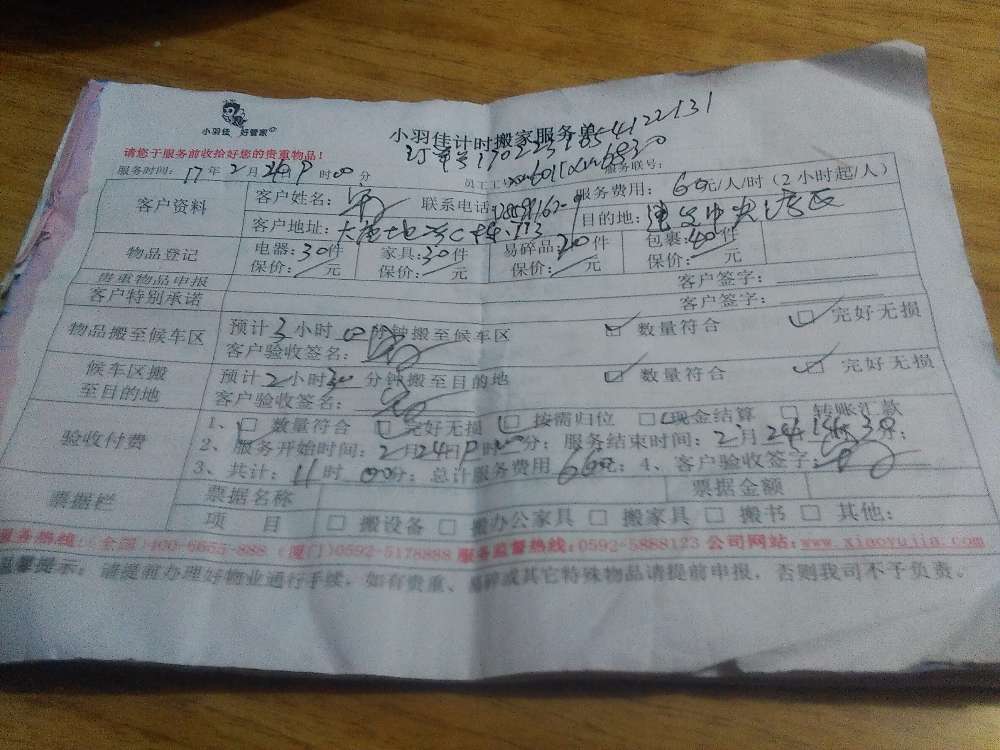 小羽佳 好管家
小羽佳计时搬家服务单
请您于服务前收拾好您的贵重物品!
订单号
服务时间: 17年2月24日 时00分; 员工工号 服务联号:
客户资料 客户姓名: 联系电话: 服务费用: 60元/人/时(2小时起/人)
客户地址: 目的地:
物品登记 电器:30件 家具:30件 易碎品:20件 包裹:40件
保价: 元 保价: 元 保价: 元 保价: 元
贵重物品申报 客户签字:
客户特别承诺 客户签字:
物品搬至候车区 预计3小时00分钟搬至候车区 数量符合 完好无损
客户验收签名:
候车区搬至目的地 预计2小时30分钟搬至目的地 数量符合 完好无损
客户验收签名:
验收付费 1、 数量符合 完好无损 按需归位 现金结算 转账汇款
2、服务开始时间: 2月24日 时00分; 服务结束时间: 2月24日 时30分;
3、共计: 11时00分; 总计服务费用660元; 4、客户验收签字:
票据栏 票据名称 票据金额
项 目 搬设备 搬办公家具 搬家具 搬书 其他:
服务热线:(全国)400-6655-888 (厦门)0592-5178888 服务监督热线:0592-5888123 公司网站:www.xiaoyujia.com
温馨提示: 请提前办理好物业通行手续, 如有贵重、易碎或其它特殊物品请提前申报, 否则我司不予负责。